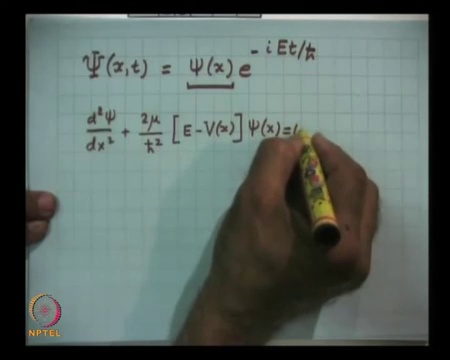 Ψ(x,t) = ψ(x) e^{-iEt/ħ}
d²ψ/dx² + 2μ/ħ² [E - V(x)] ψ(x) =
NPTEL